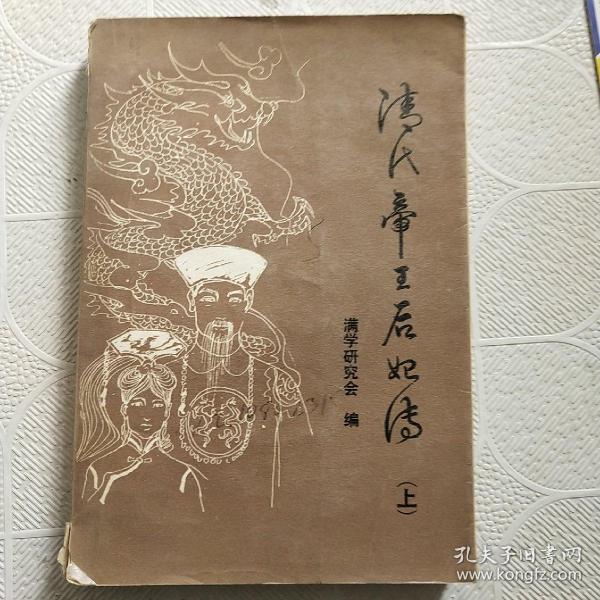 清代帝王后妃传
（上）
满学研究会 编
孔夫子旧书网
www.kongfz.com